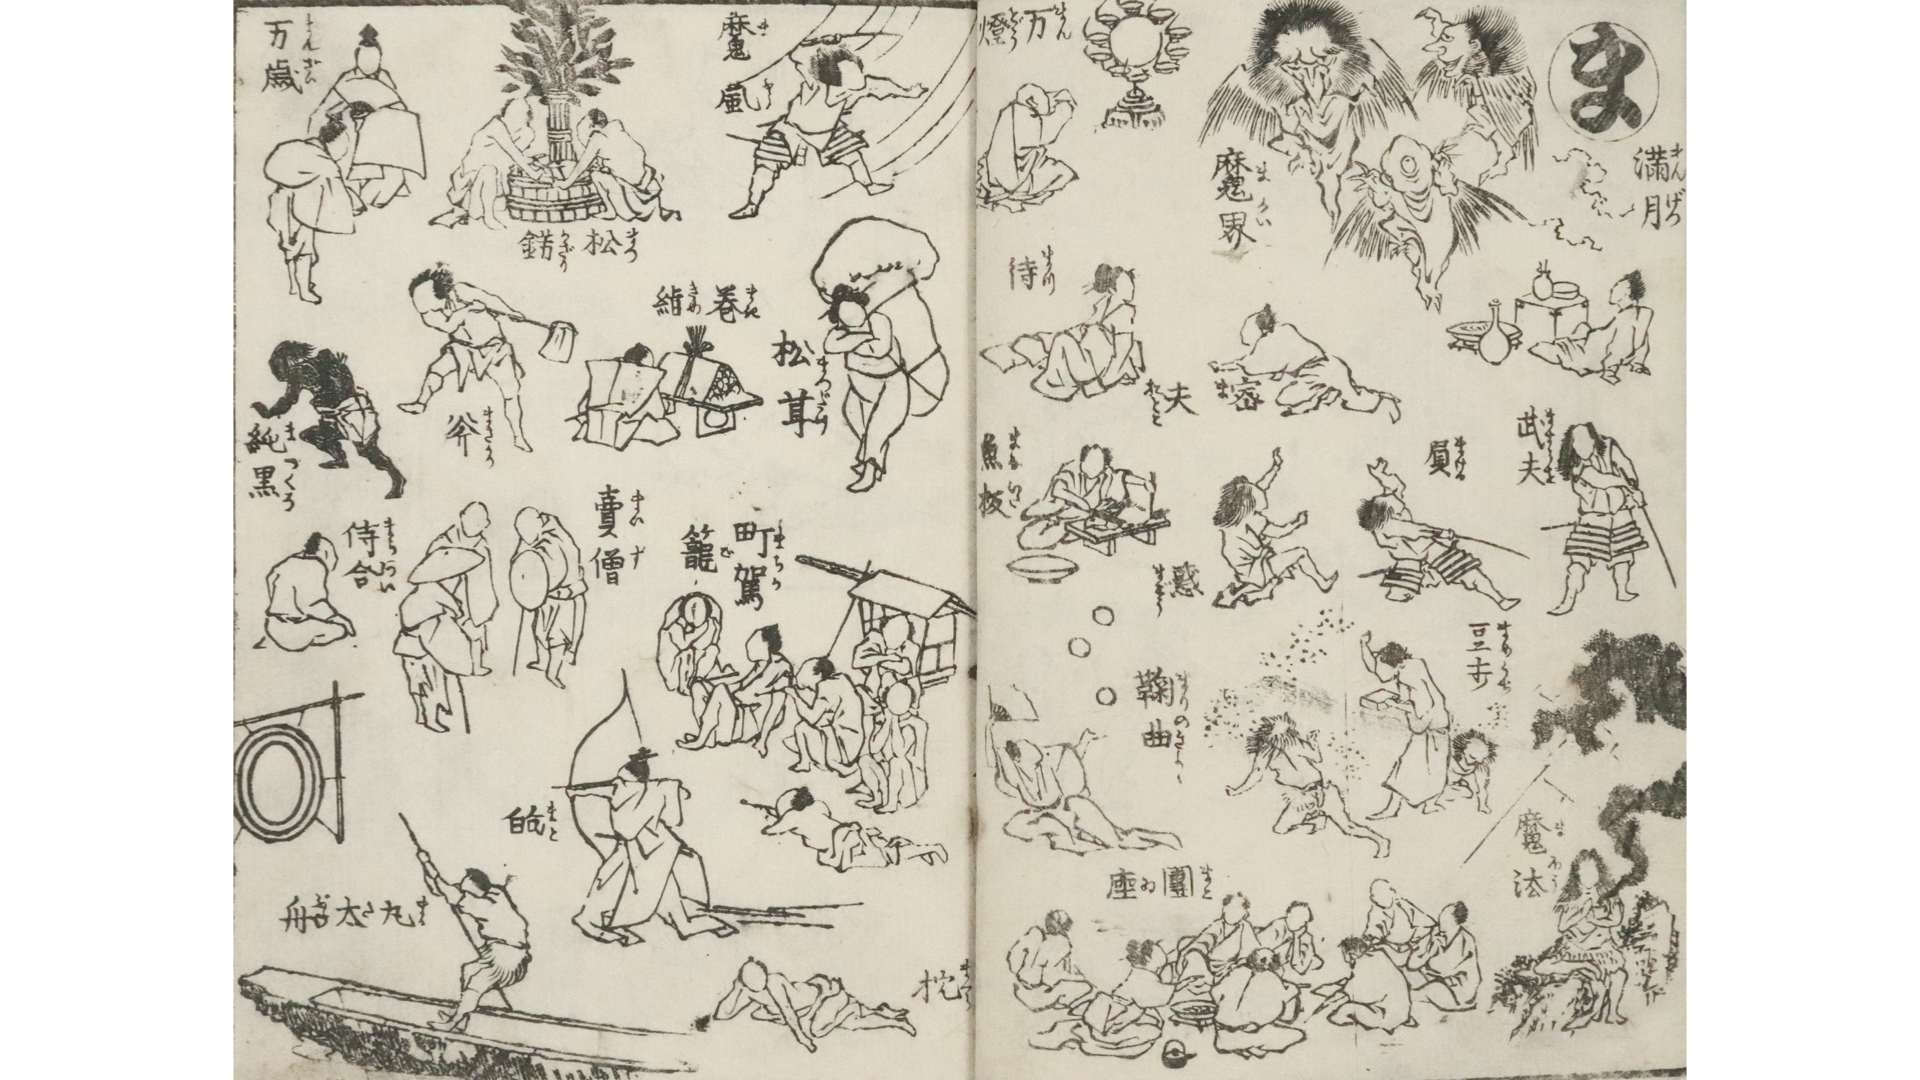 ま
満月
まんげつ
魔界
まかい
万燈
まんどう
待
まつ
密
ま
夫
武夫
ますらを
員
まける
魚板
まないた
惑
まどふ
豆
鞠曲
まりのきよく
魔法
まほう
團座
まとゐ
魔風
まかぜ
松餝
まつかざり
万歳
まんざい
松茸
まつたけ
巻
まき
純黒
まつくろ
賣僧
まいす
町駕籠
まちかご
待合
まちあい
的
まと
丸太舟
まるたぶね
枕
まくら